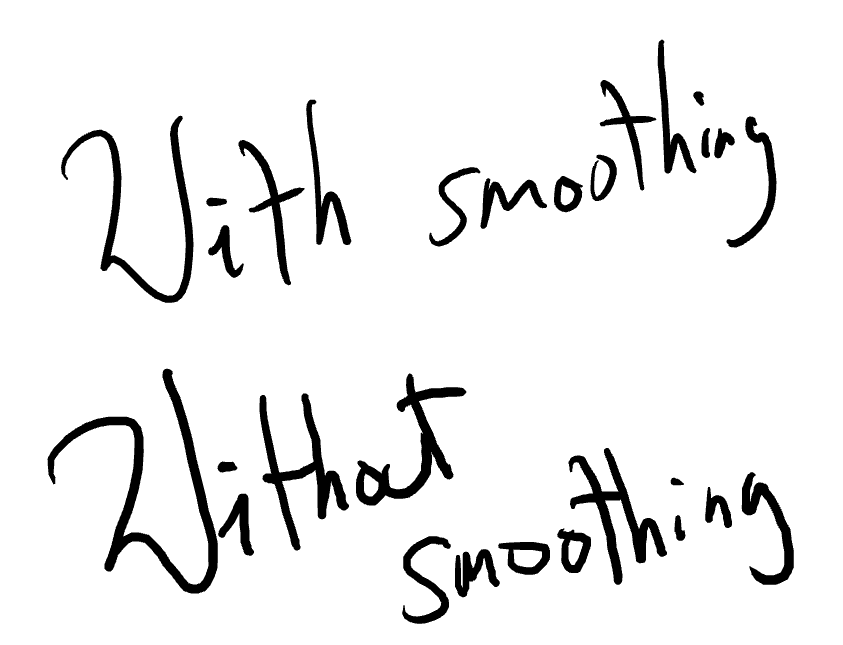 With smoothing
Without
smoothing